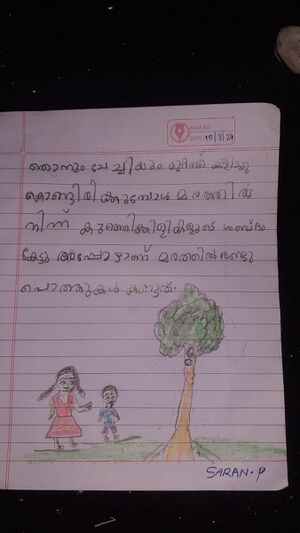 PAGE NO.
DATE: 15/3/24
ഞാനും ചേച്ചിയും മുറ്റത്ത് കളിച്ചു
കൊണ്ടിരിക്കുമ്പോൾ മരത്തിൽ
നിന്ന് കുഞ്ഞിക്കിളികളുടെ ശബ്ദം
കേട്ടു അപ്പോഴാണ് മരത്തിൽ രണ്ടു
പൊത്തുകൾ കണ്ടത്.
SARAN.P